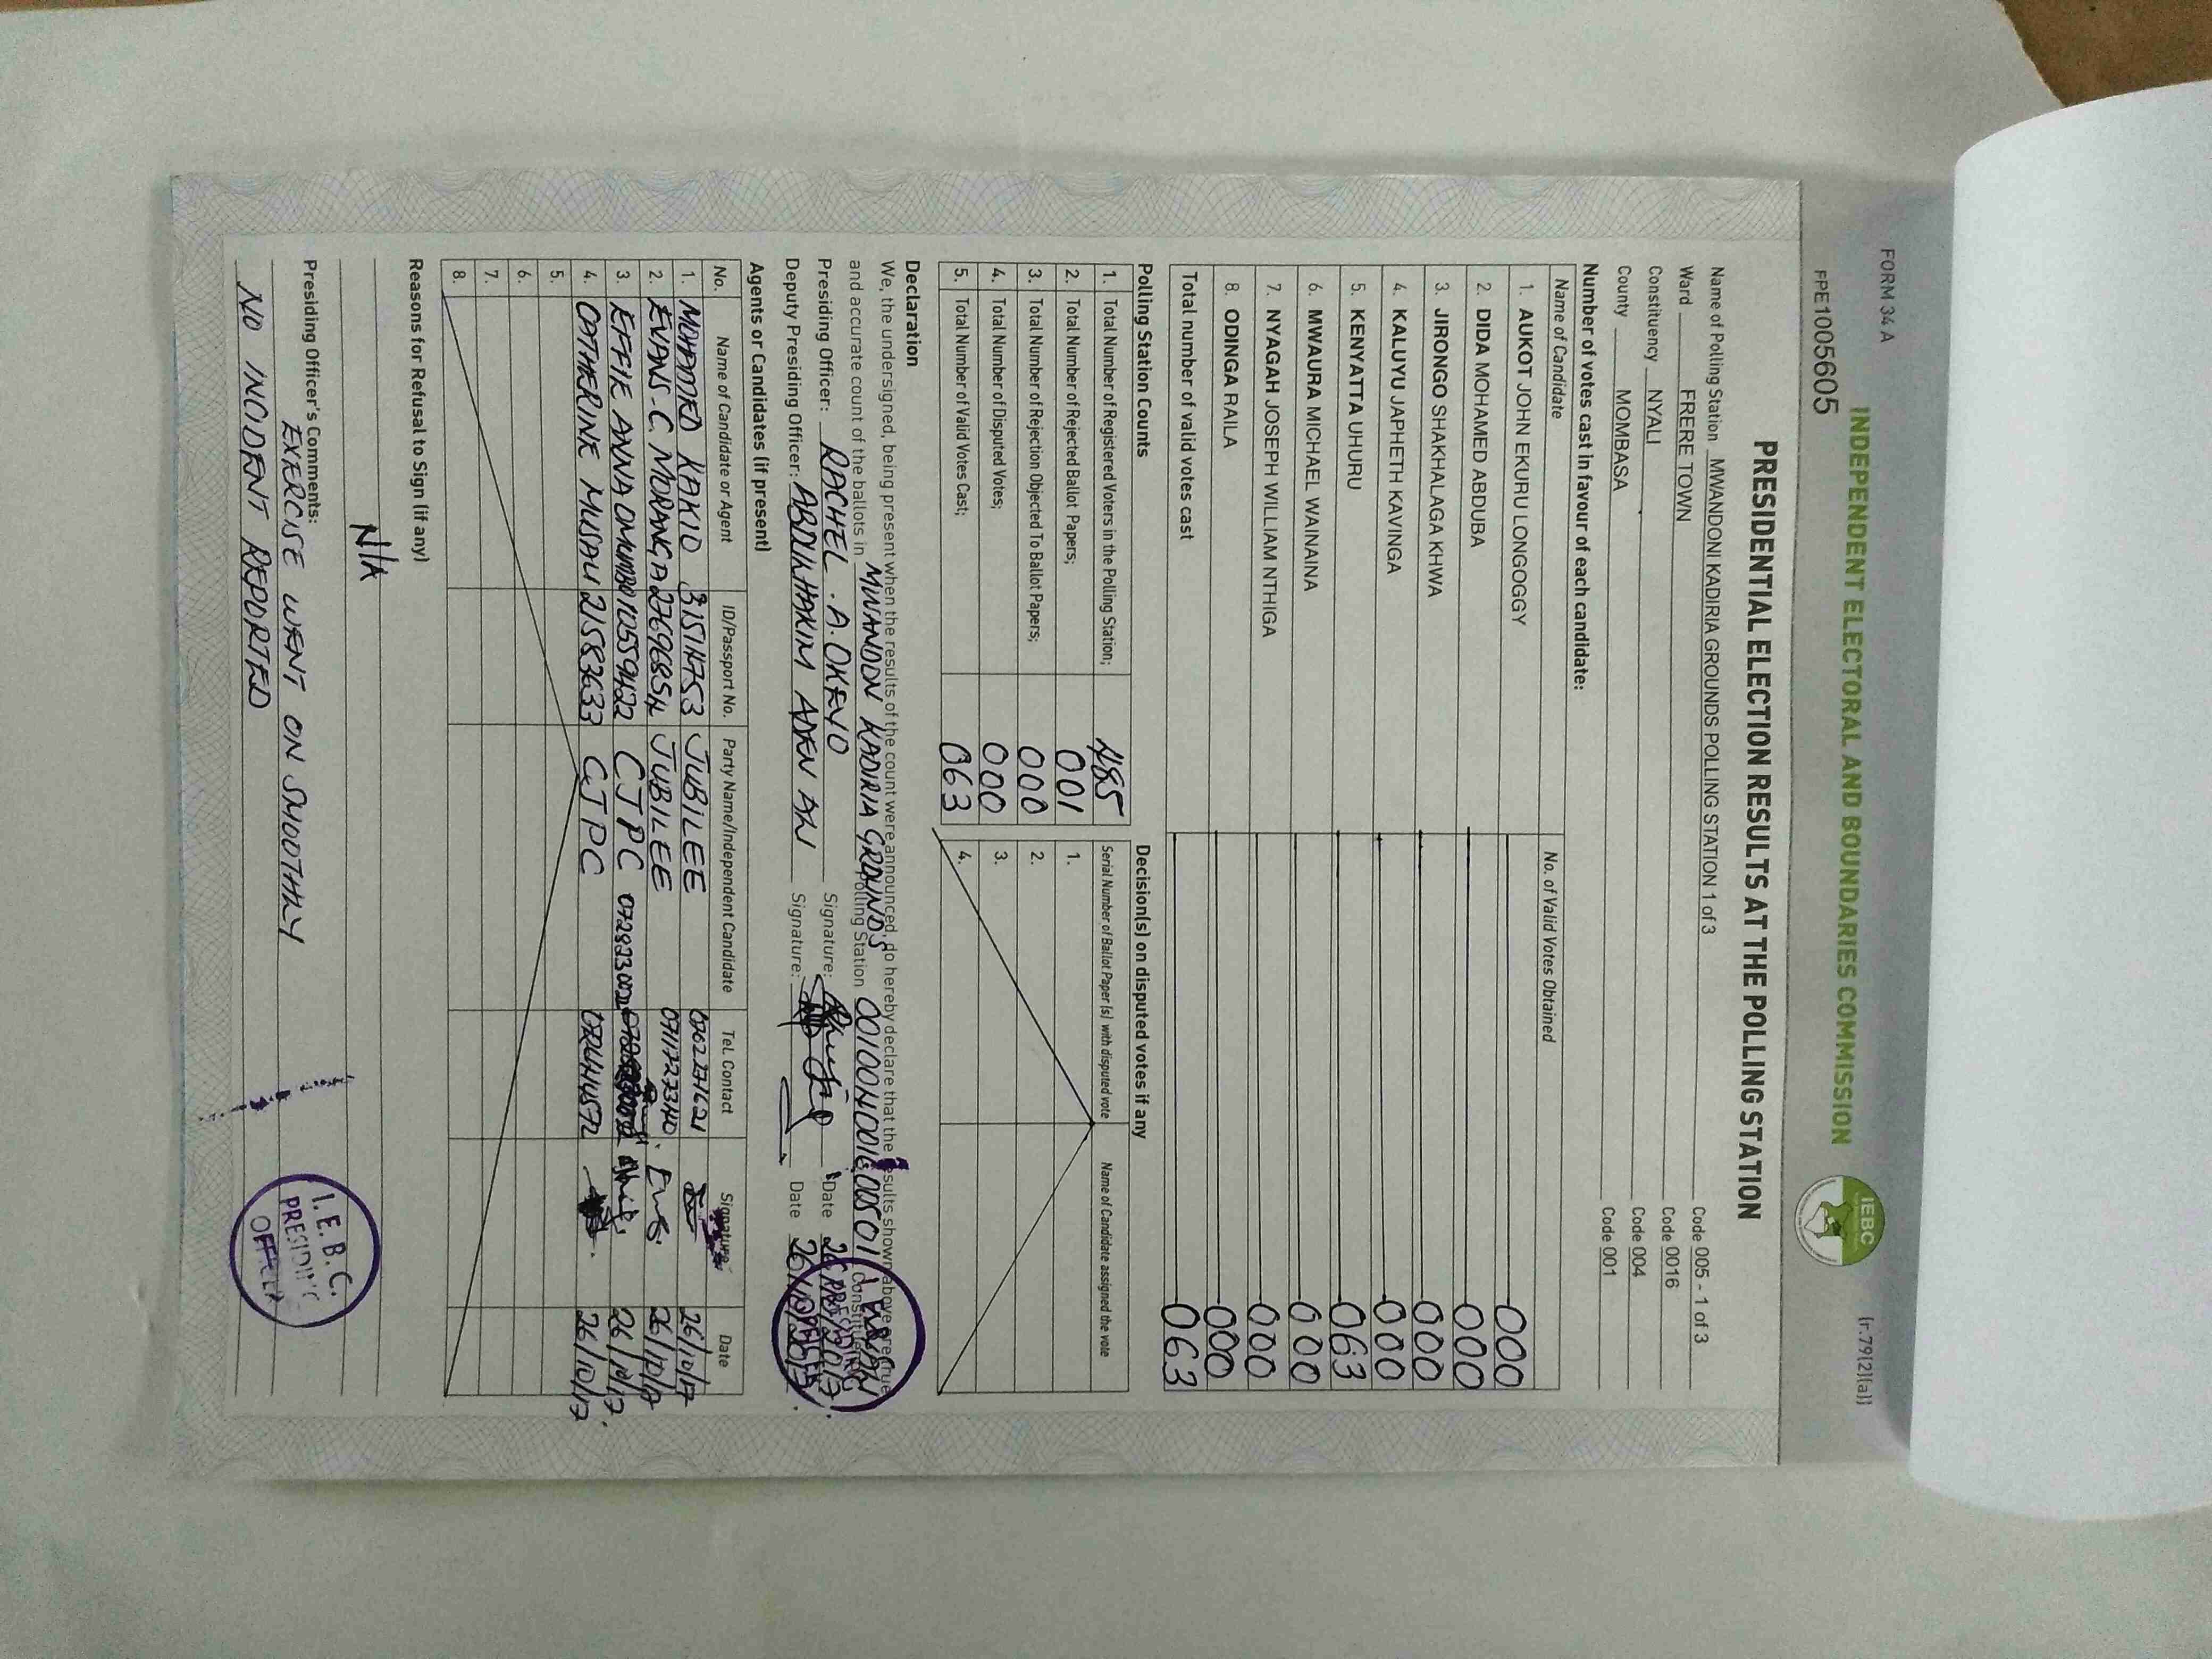 FORM 34 A
(r.79(2)(a))
INDEPENDENT ELECTORAL AND BOUNDARIES COMMISSION
IEBC
PE1005605
PRESIDENTIAL ELECTION RESULTS AT THE POLLING STATION
Name of Polling Station MWANDONI KADIRIA GROUNDS POLLING STATION 1 of 3 Code 005 - 1 of 3
Ward FRERE TOWN Code 0016
Constituency NYALI Code 004
County MOMBASA Code 001
Number of votes cast in favour of each candidate:
Name of Candidate No. of Valid Votes Obtained
1. AUKOT JOHN EKURU LONGOGGY 000
2. DIDA MOHAMED ABDUBA 000
3. JIRONGO SHAKHALAGA KHWA 000
4. KALUYU JAPHETH KAVINGA 000
5. KENYATTA UHURU 063
6. MWAURA MICHAEL WAINAINA 000
7. NYAGAH JOSEPH WILLIAM NTHIGA 000
8. ODINGA RAILA 000
Total number of valid votes cast 063
Polling Station Counts
1. Total Number of Registered Voters in the Polling Station; 485
2. Total Number of Rejected Ballot Papers; 001
3. Total Number of Rejection Objected To Ballot Papers; 000
4. Total Number of Disputed Votes; 000
5. Total Number of Valid Votes Cast; 063
Decision(s) on disputed votes if any
Serial Number of Ballot Paper (s) with disputed vote Name of Candidate assigned the vote
1.
2.
3.
4.
Declaration
We, the undersigned, being present when the results of the count were announced, do hereby declare that the results shown above are true
and accurate count of the ballots in MWANDONI KADIRIA GROUNDS Polling Station
Presiding Officer: RACHEL . A. OKEYO Signature: Date
Deputy Presiding Officer: ABDULHAKIM ADEN Signature: Date 26/10/2017
Agents or Candidates (if present)
No. Name of Candidate or Agent ID/Passport No. Party Name/Independent Candidate Tel. Contact Signature Date
1. JUBILEE 0702271621 26/10/17
2. EVANS - C. MORANGA JUBILEE 26/10/17
3. EFFIE ANNA CJPC 26/10/17.
4. CATHERINE MUSAU 21583633 CJPC 26/10/17
5.
6.
7.
8.
Reasons for Refusal to Sign (if any)
N/A
Presiding Officer's Comments:
EXERCISE WENT ON SMOOTHLY
NO INCIDENT REPORTED
I.E.B.C.
PRESIDING
OFFICER